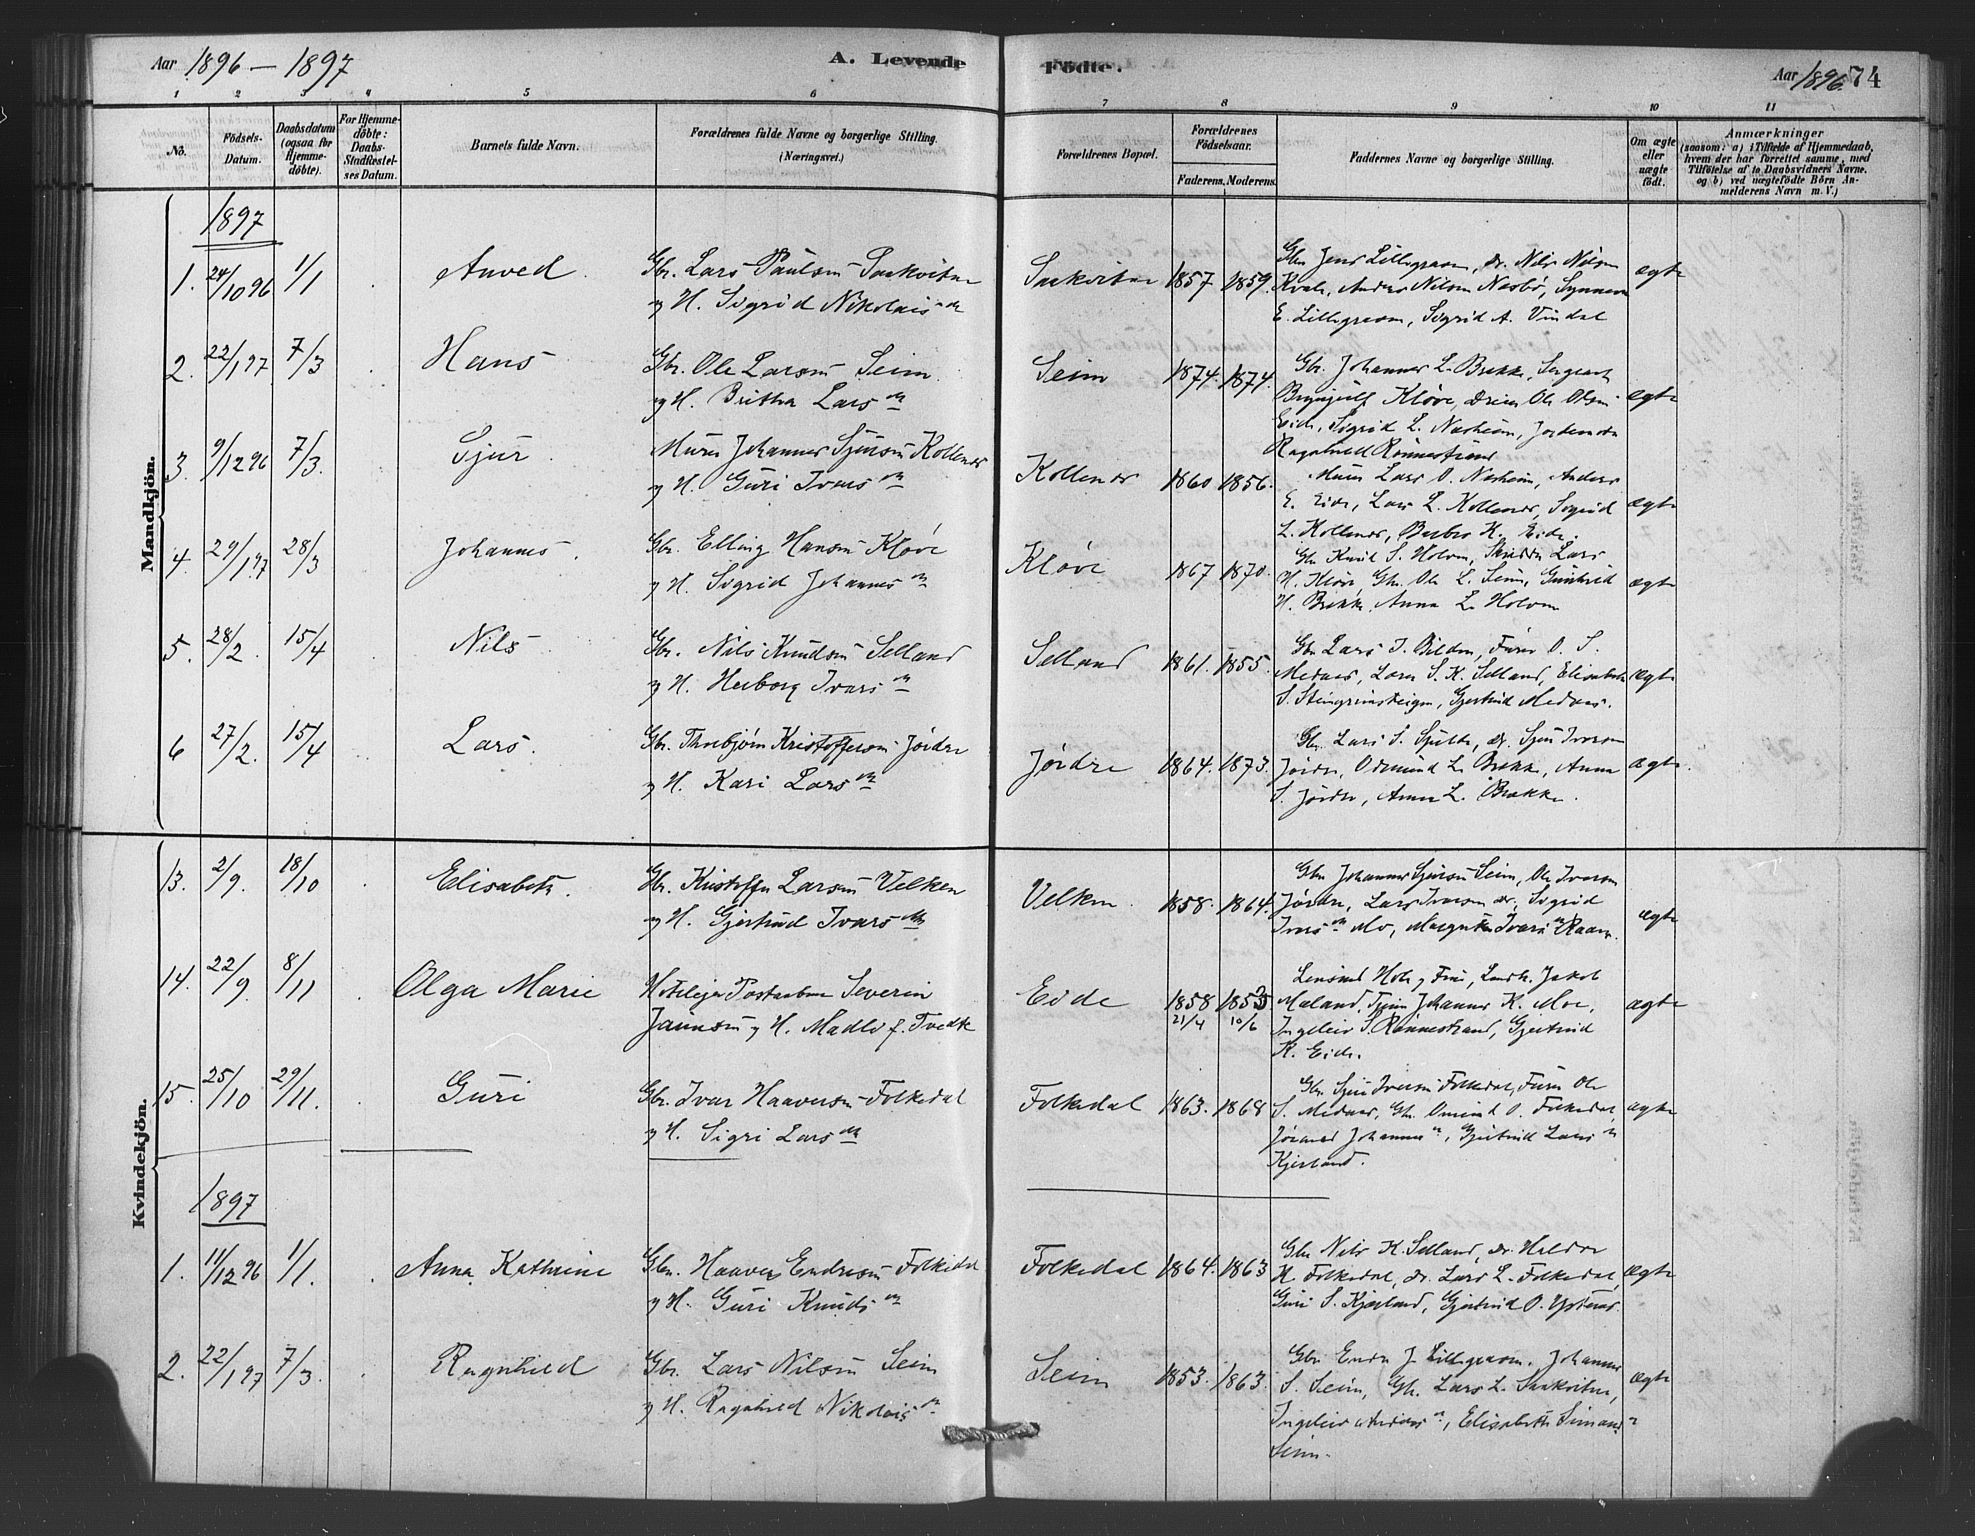 Aar 1896 - 1897
A. Levende Födte.
Aar 1896. 74
1 2 3 4 5 6 7 8 9 10 11
No.
Födsels-Datum.
Daabsdatum (ogsaa for Hjemme-döbte).
For Hjemme-döbte: Daabs-Stadfæstel-ses Datum.
Barnets fulde Navn.
Forældrenes fulde Navne og borgerlige Stilling. (Næringsvei.)
Forældrenes Bopæl.
Forældrenes Födselsaar.
Faderens. Moderens.
Faddernes Navne og borgerlige Stilling.
Om ægte eller uægte födt.
Anmærkninger
(saasom: a) i Tilfælde af Hjemmedaab,
hvem der har forrettet samme, med
Tilföielse af to Daabsvidners Navne.
og b) ved uægtefödte Börn An-
melderens Navn m. V.)
Mandkjön.
1897
1. 24/10 96 1/1 Anved. Gbr. Lars Paulsen
og H. Sigrid Nikolaisdr
1857 1859. ægte
Kvale, Anders Nilsen Nesbø, Synneva
E. Lillegraven, Sigrid A. Vindal
2. 22/1 97 7/3 Hans Gbr. Ole Larsen Seim.
og H. Britha Larsdr
Seim 1874. 1874. Gbr. Johannes L. Brekke, Sergeant
Brynjulf Kløve, Ole Olsen ægte
Eide, Sigrid L. Nesheim,
Ragnhild Rønnestrand
3. 9/12 96 7/3. Sjur Murer Johannes Sjursen Kollenes
og H. Guri Ivarsdr
Kollenes 1860 1856. Murer Lars O. Nesheim, Anders
E. Eide, Lars L. Kollenes, Sigrid ægte
L. Kollenes, K. Eide.
4. 29/1 97 28/3 Johannes. Gbr. Elling Hansen Kløve
og H. Sigrid Johannesdr
Kløve 1867 1870. Gbr. Knud S. Holven, Lars
H. Kløve Gbr. Ole L. Seim, Gunhild ægte
H. Brekke, Anna L. Holven
5. 28/2. 15/4 Nils Gbr. Nils Knudsen Selland
og H. Herborg Ivarsdr
Selland 1861. 1855. Gbr. Lars I. Bilden, Furer O. S.
Medaas, Lars S. K. Selland, Elisabeth ægte
S. Steingrimsteigen, Gjertrud Medaas.
6 27/2. 15/4 Lars. Gbr. Thorbjørn Kristoffersen Jørdre
og H. Kari Larsdr
Jørdre 1864. 1873. Gbr. Lars S. Spilde, do. Sjur Iversen
Jørdre, Odmund L. Brekke, Anna ægte.
S. Jørdre, Anna L. Brekke.
Kvindekjön.
13. 2/9. 18/10 Elisabeth. Gbr. Kristoffer Larsen Velken
og H. Gjertrud Ivarsdr
Velken. 1858. 1864. Gbr. Johannes Sjursen Seim, Ole Iversen
Jørdre, Lars Iversen do, Sigrid ægte
Ivarsdr Mo, Margretha Ivarsdr
14. 22/9. 8/11 Olga Marie Severin
Jaunsen og H. Madli f. Tvedt
Eide 1858 21/4 10/6 Lensmand Hole og Frue, Jakob
Mæland, Johannes K. Moe, ægte
Ingeleiv S. Rønnestrand, Gjertrud
K. Eide.
15. 25/10 29/11. Guri Gbr. Ivar Haaversen Folkedal
og H. Sigri Larsdr
Folkedal 1863. 1868 Gbr. Sjur Iversen Folkedal, Furer Ole
S. Medaas, Gbr. Omund O. Folkedal, ægte
Johannesdr, Gjertrud Larsdr
Kjerland.
1897
1. 11/12 96 1/1. Anna Kathrine Gbr. Haaver Endresen Folkedal
og H. Guri Knudsdr
Folkedal 1864. 1863 Gbr. Nils K. Selland, do. Haldor
H. Folkedal, do. Lars L. Folkedal, ægte
Guri S. Kjerland, Gjertrud O. Ystenes
2. 22/1 97 7/3. Ragnhild Gbr. Lars Nilsen Seim
og H. Ragnhild Nikolaisdr
Seim 1853. 1863. Gbr. Endre J. Lillegraven, Johannes
S. Seim, Gbr. Lars L. ægte
Ingeleiv Andersdr, Elisabeth Simonsdr
Seim.